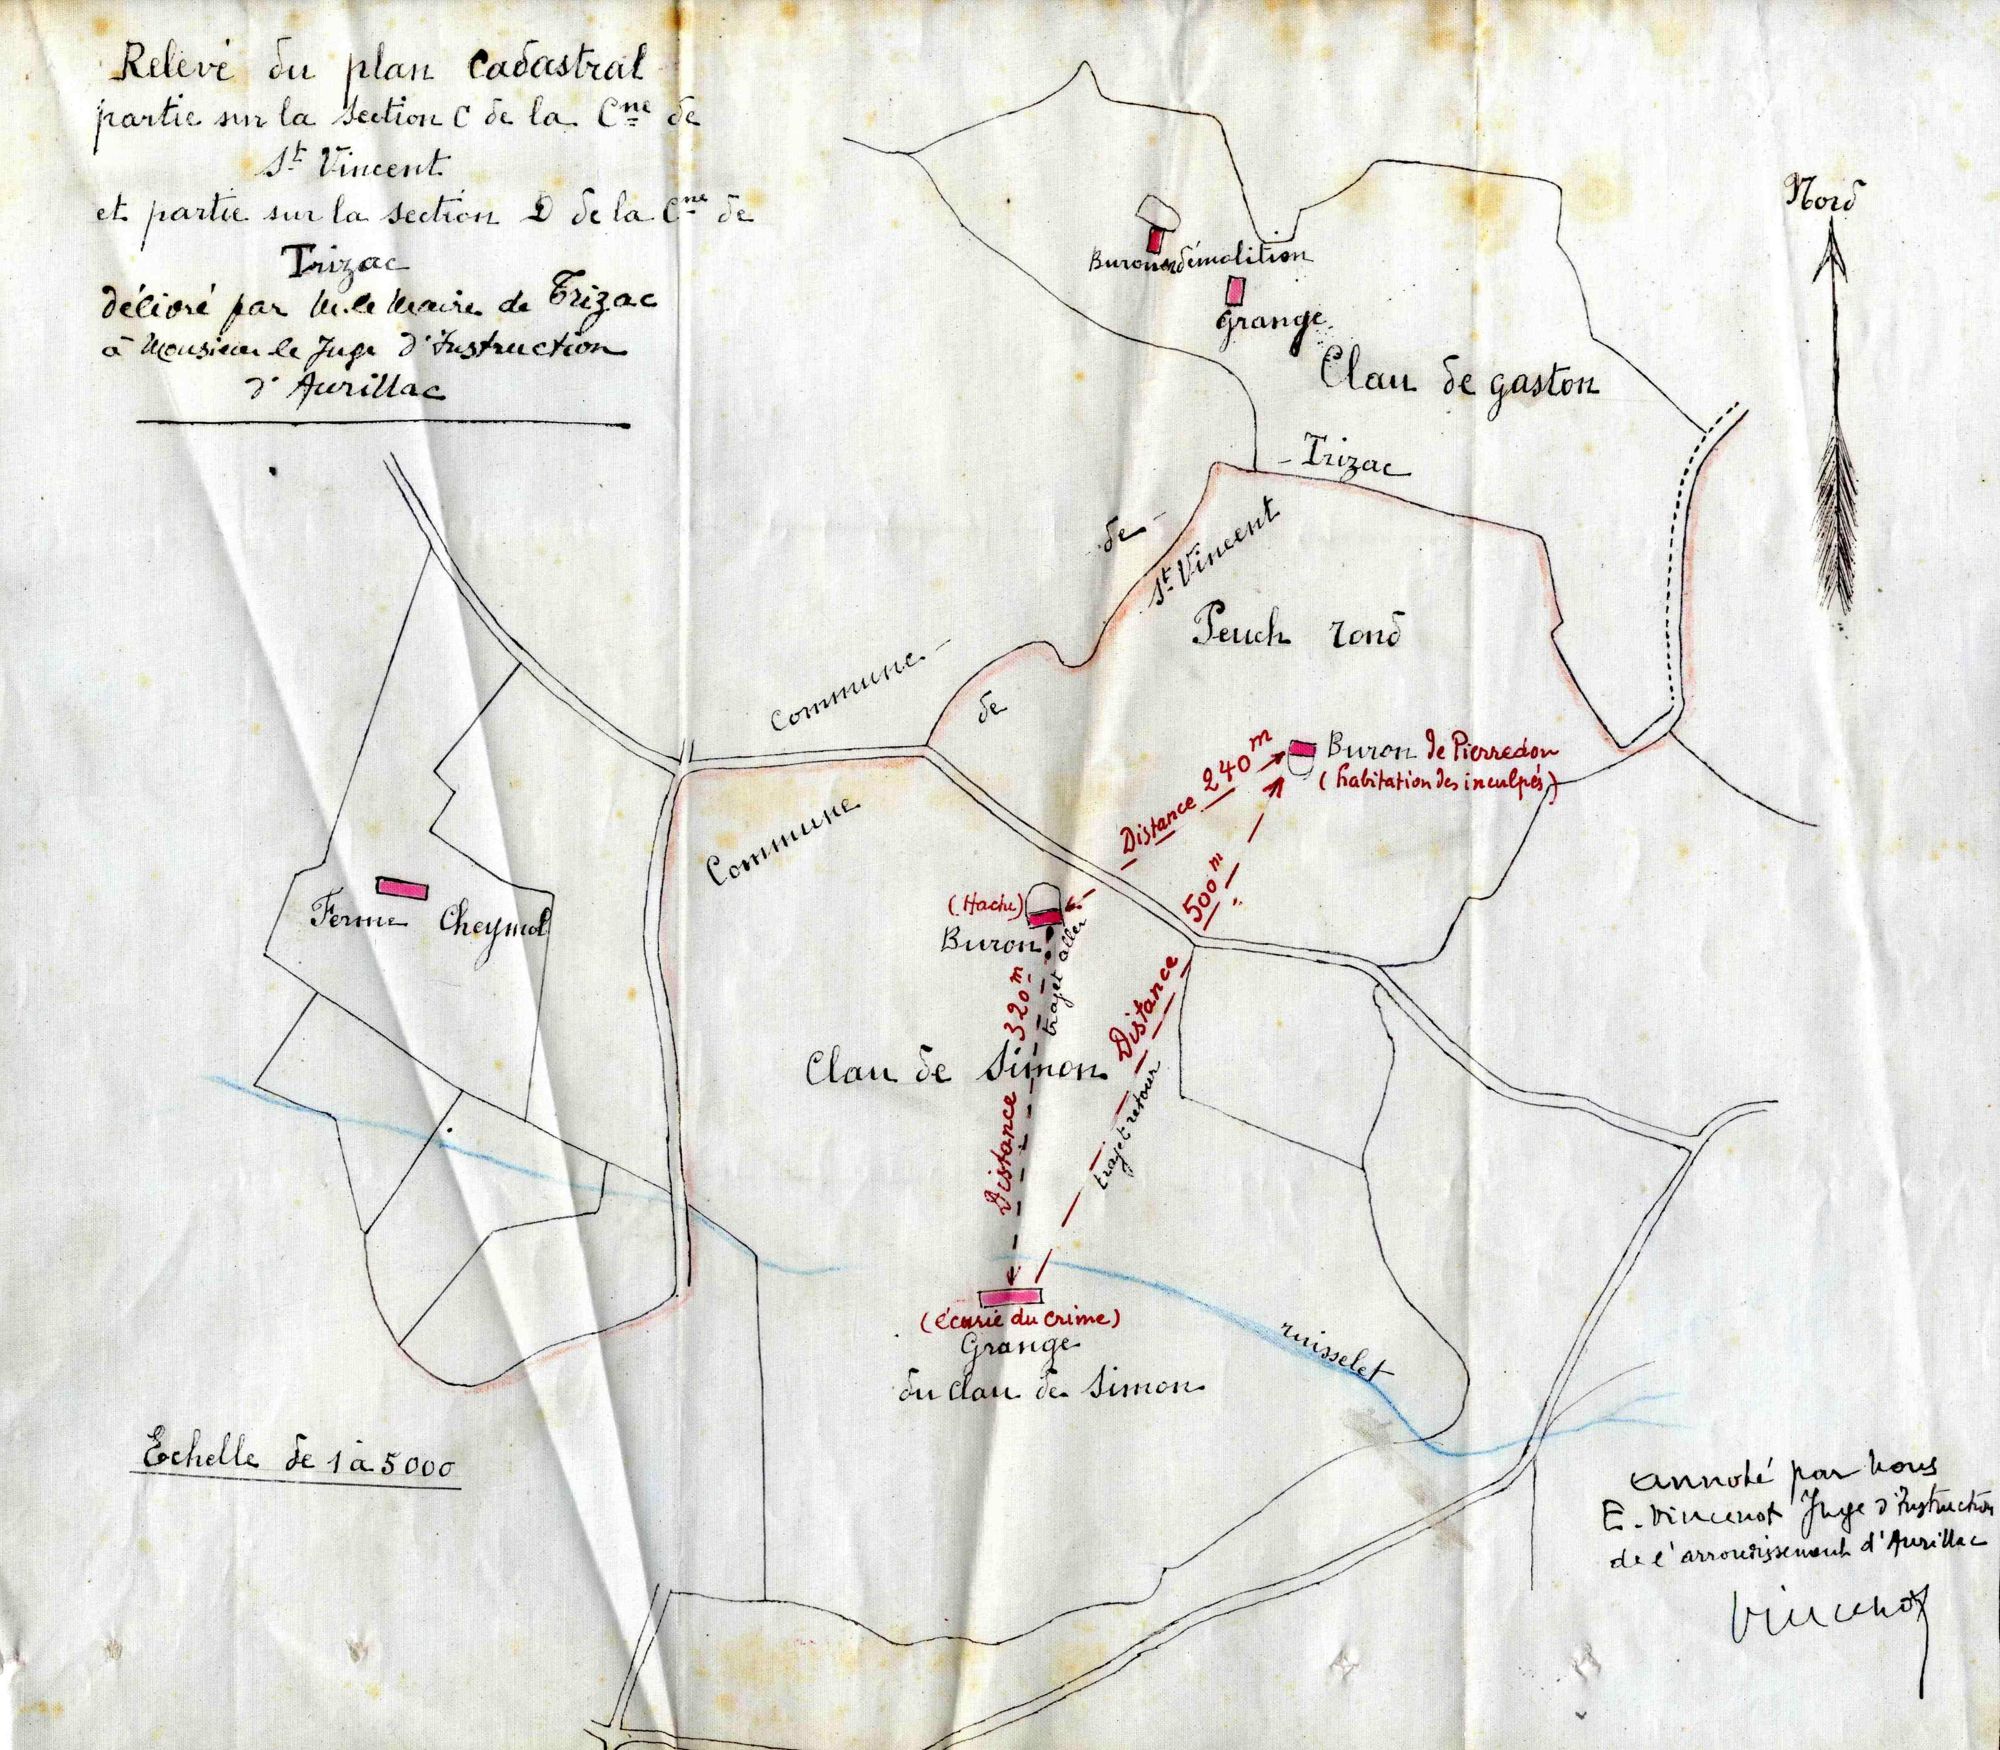 Relevé du plan cadastral
partie sur la section C de la Cne de
St Vincent
et partie sur la section D de la Cne de
Trizac
délivré par M. le Maire de Trizac
à Monsieur le Juge d'Instruction
d'Aurillac
Nord
Buron en démolition
Grange
Clau de gaston
- Trizac
de -
St Vincent
Peuch rond
Commune -
de
Commune
Distance 240 m
Buron de Pierredon
(habitation des inculpés)
500 m
Distance
trajet retour
Ferme Cheymol
(Hache)
Buron
trajet aller
Distance 320 m
Clau de Simon
(écurie du crime)
Grange
du clau de Simon
ruisselet
Echelle de 1 à 5000
annoté par nous
E. Vincenot Juge d'Instruction
de l'arrondissement d'Aurillac
Vincenot